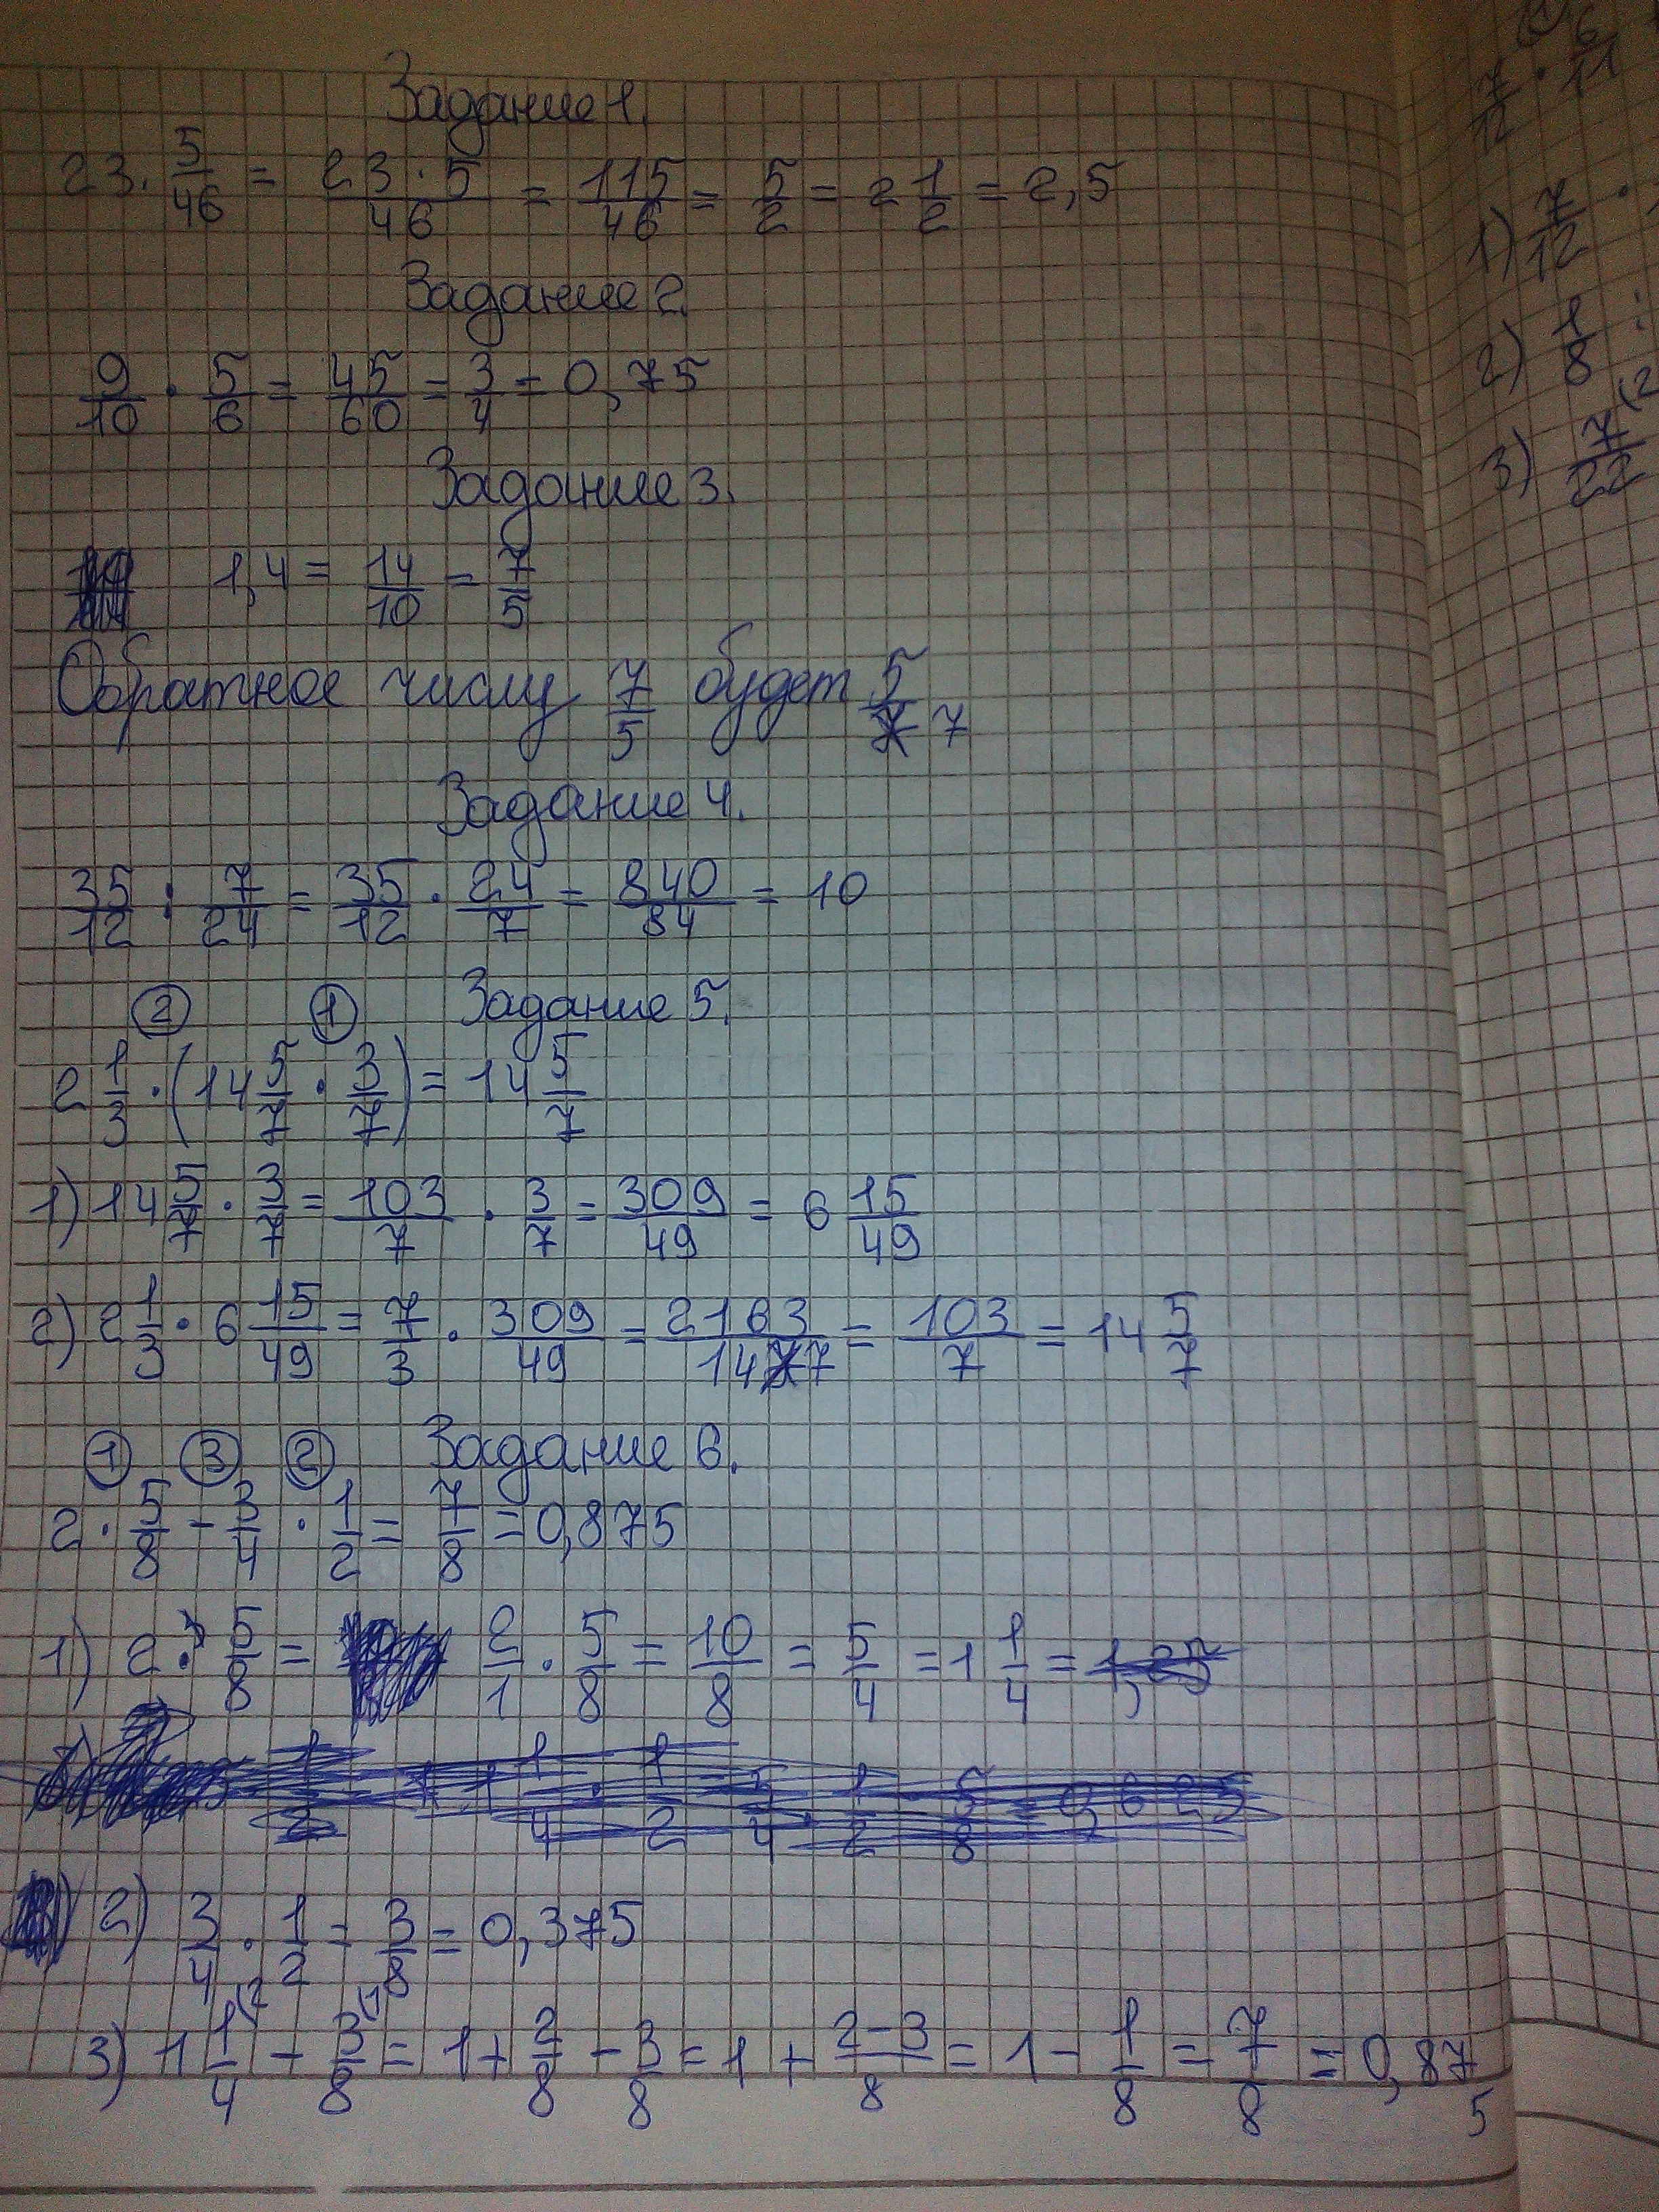 Задание 1.
23 · 5/46 = 23·5/46 = 115/46 = 5/2 = 2 1/2 = 2,5
Задание 2.
9/10 · 5/6 = 45/60 = 3/4 = 0,75
Задание 3.
1,4 = 14/10 = 7/5
Обратное числу 7/5 будет 5/7
Задание 4.
35/12 : 7/24 = 35/12 · 24/7 = 840/84 = 10
② ① Задание 5.
2 1/3 · (14 5/7 · 3/7) = 14 5/7
1) 14 5/7 · 3/7 = 103/7 · 3/7 = 309/49 = 6 15/49
2) 2 1/3 · 6 15/49 = 7/3 · 309/49 = 2163/147 = 103/7 = 14 5/7
① ③ ② Задание 6.
2 · 5/8 - 3/4 · 1/2 = 7/8 = 0,875
1) 2 · 5/8 = 2/1 · 5/8 = 10/8 = 5/4 = 1 1/4 =
2) 3/4 · 1/2 = 3/8 = 0,375
3) 1 1/4 (2 - 3/8 (1 = 1 + 2/8 - 3/8 = 1 + 2-3/8 = 1 - 1/8 = 7/8 = 0,875
6
7/12 · 11
1) 7/12 ·
2) 1/8 :
3) 7/22 (2